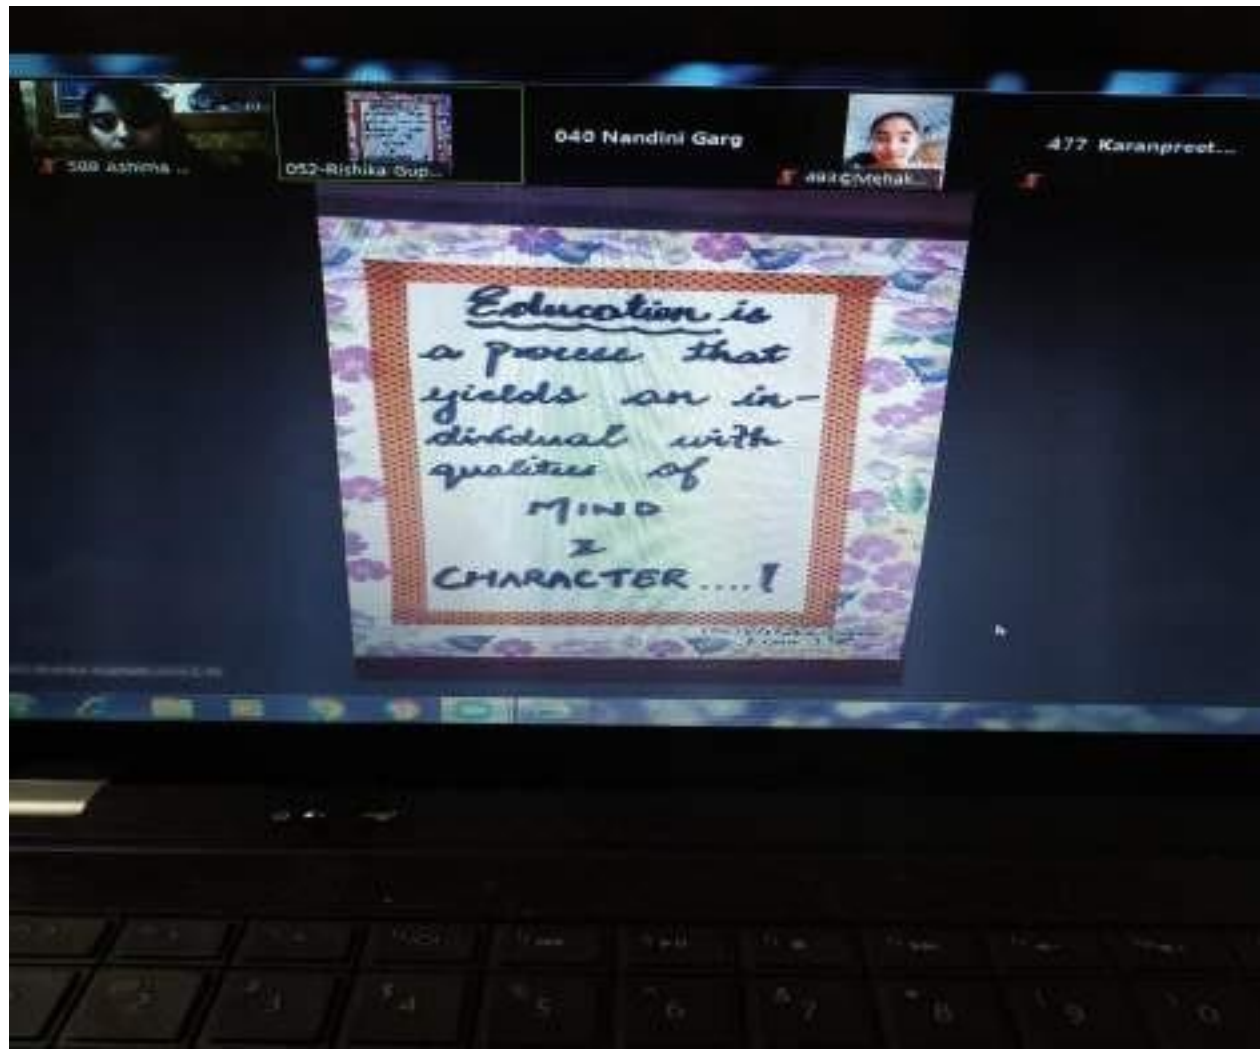 588 Ashima ...
052-Rishika Gup...
040 Nandini Garg
Mehak...
477 Karanpreet...
Education is
a process that
yields an in-
dividual with
qualities of
MIND
&
CHARACTER ....!
2
3
4
5
6
7
8
9
0